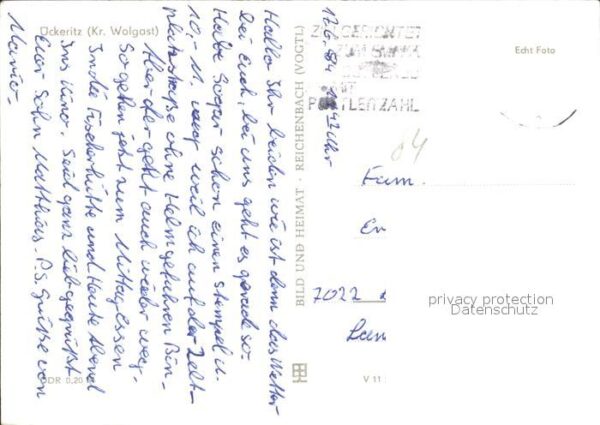 Ückeritz (Kr. Wolgast)
17.6.84 1142 Uhr
Hallo Ihr beiden wie ist denn das Wetter
bei Euch, bei uns geht es gerade so.
Habe Sogar schon einen Stempel u.
10,- M. weg weil ich auf der Zelt-
platzstraße ohne Helm gefahren Bin
Aber der geht auch wieder weg.
So gehen jetzt zum Mittagessen
In die Fischerhütte und Heute Abend
Ins Kino. Seid ganz lieb gegrüßt
Euer Sohn Matthias. P.S. Grüße von
Mario.
DDR 0,20 M
BILD UND HEIMAT · REICHENBACH (VOGTL)
V 11
Echt Foto
POSTLEITZAHL
84
Fam.
7022
privacy protection
Datenschutz